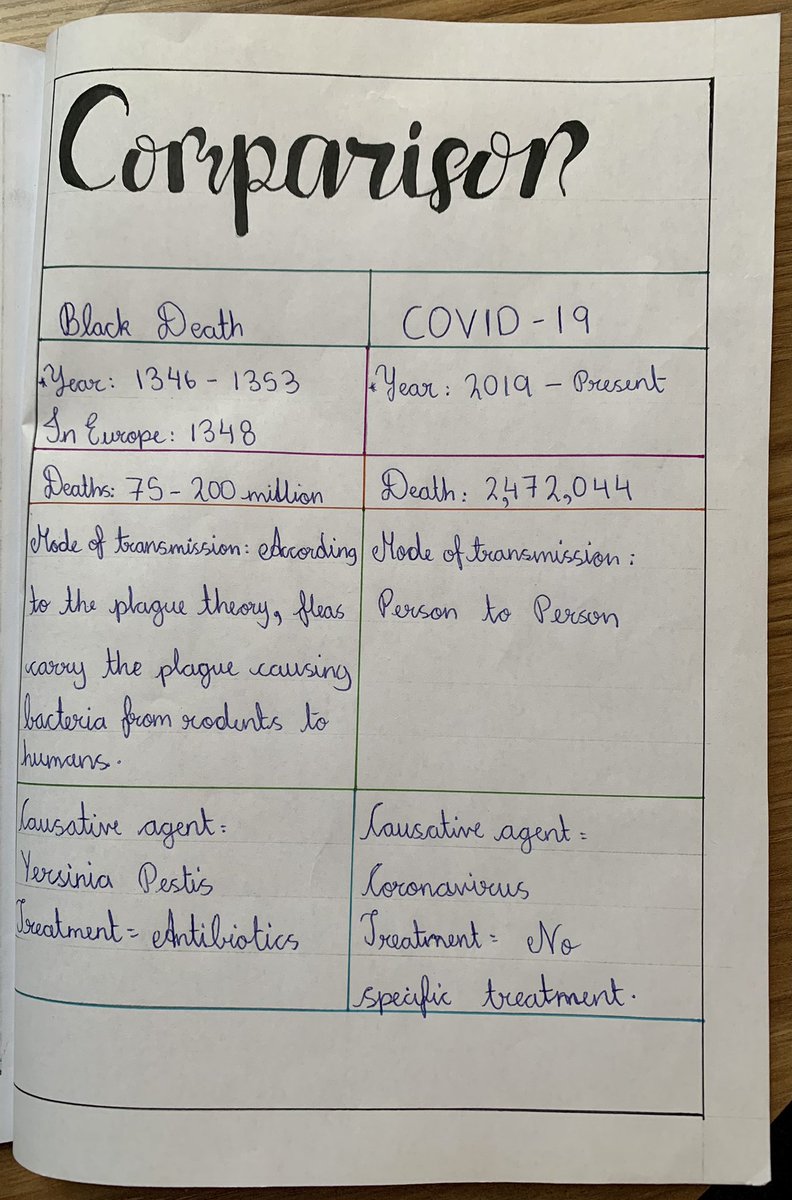 Comparison
Black Death
COVID-19
*Year: 1346 - 1353
In Europe: 1348
*Year: 2019 - Present
Deaths: 75 - 200 million
Death: 2,472,044
Mode of transmission: According
to the plague theory, fleas
carry the plague causing
bacteria from rodents to
humans.
Mode of transmission:
Person to Person
Causative agent:
Yersinia Pestis
Treatment = Antibiotics
Causative agent =
Coronavirus
Treatment = No
specific treatment.